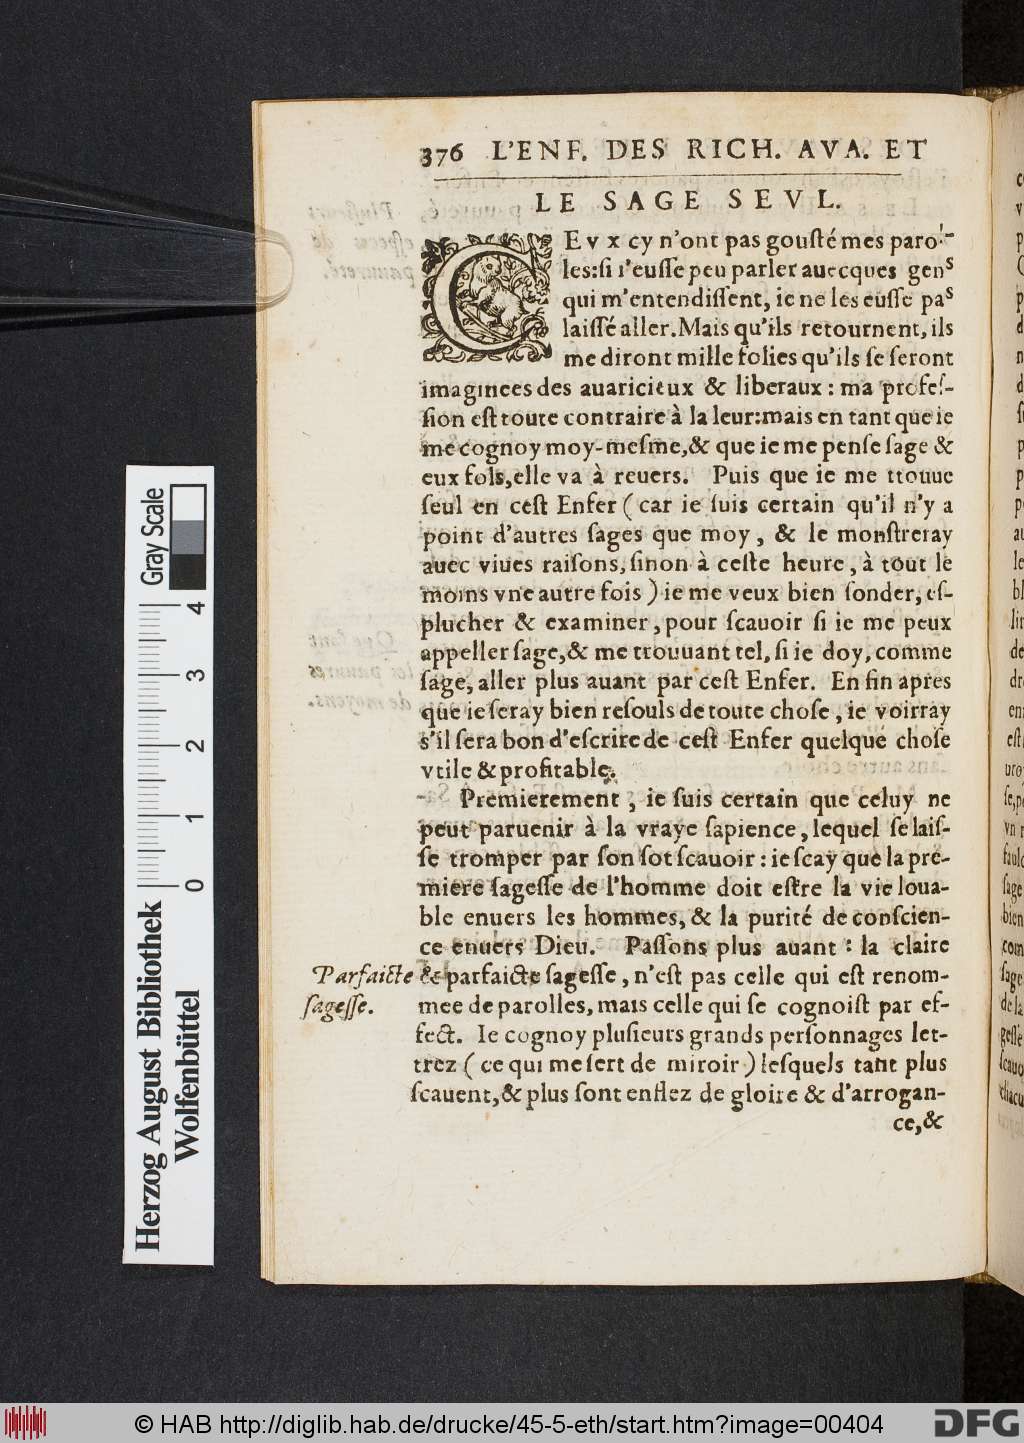 376 L'ENF. DES RICH. AVA. ET
LE SAGE SEVL.
CEvx cy n'ont pas gousté mes paro-
les:si i'eusse peu parler auecques gens
qui m'entendissent, ie ne les eusse pas
laissé aller. Mais qu'ils retournent, ils
me diront mille folies qu'ils se seront
imaginees des auaricieux & liberaux : ma profes-
sion est toute contraire à la leur:mais en tant que ie
me cognoy moy-mesme,& que ie me pense sage &
eux fols,elle va à reuers. Puis que ie me ttouue
seul en cest Enfer ( car ie suis certain qu'il n'y a
point d'autres sages que moy , & le monstreray
auec viues raisons, sinon à ceste heure , à tout le
moins vne autre fois ) ie me veux bien sonder, es-
plucher & examiner, pour scauoir si ie me peux
appeller sage,& me trouuant tel, si ie doy, comme
sage, aller plus auant par cest Enfer. En fin apres
que ie seray bien resouls de toute chose , ie voirray
s'il sera bon d'escrire de cest Enfer quelque chose
vtile & profitable.
Premierement , ie suis certain que celuy ne
peut paruenir à la vraye sapience, lequel se lais-
se tromper par son sot scauoir : ie scay que la pre-
miere sagesse de l'homme doit estre la vie loua-
ble enuers les hommes, & la purité de conscien-
ce enuers Dieu. Passons plus auant : la claire
Parfaicte & parfaicte sagesse, n'est pas celle qui est renom-
sagesse. mee de parolles, mais celle qui se cognoist par ef-
fect. Ie cognoy plusieurs grands personnages let-
trez ( ce qui me sert de miroir ) lesquels tant plus
scauent,& plus sont enflez de gloire & d'arrogan-
ce, &
Gray Scale
4 3 2 1 0
Herzog August Bibliothek
Wolfenbüttel
© HAB http://diglib.hab.de/drucke/45-5-eth/start.htm?image=00404
DFG